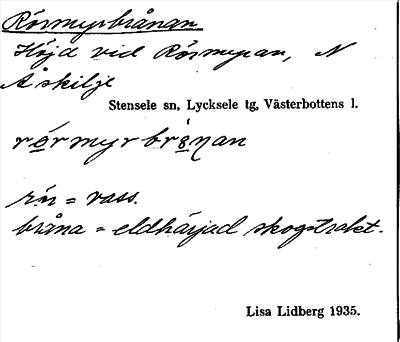 Rörmyrbrånan
Höjd vid Rörmyran, N
Åskilje
Stensele sn, Lycksele tg, Västerbottens l.
rörmyrbrånan
rör = vass.
bråna = eldhärjad skogstrakt.
Lisa Lidberg 1935.